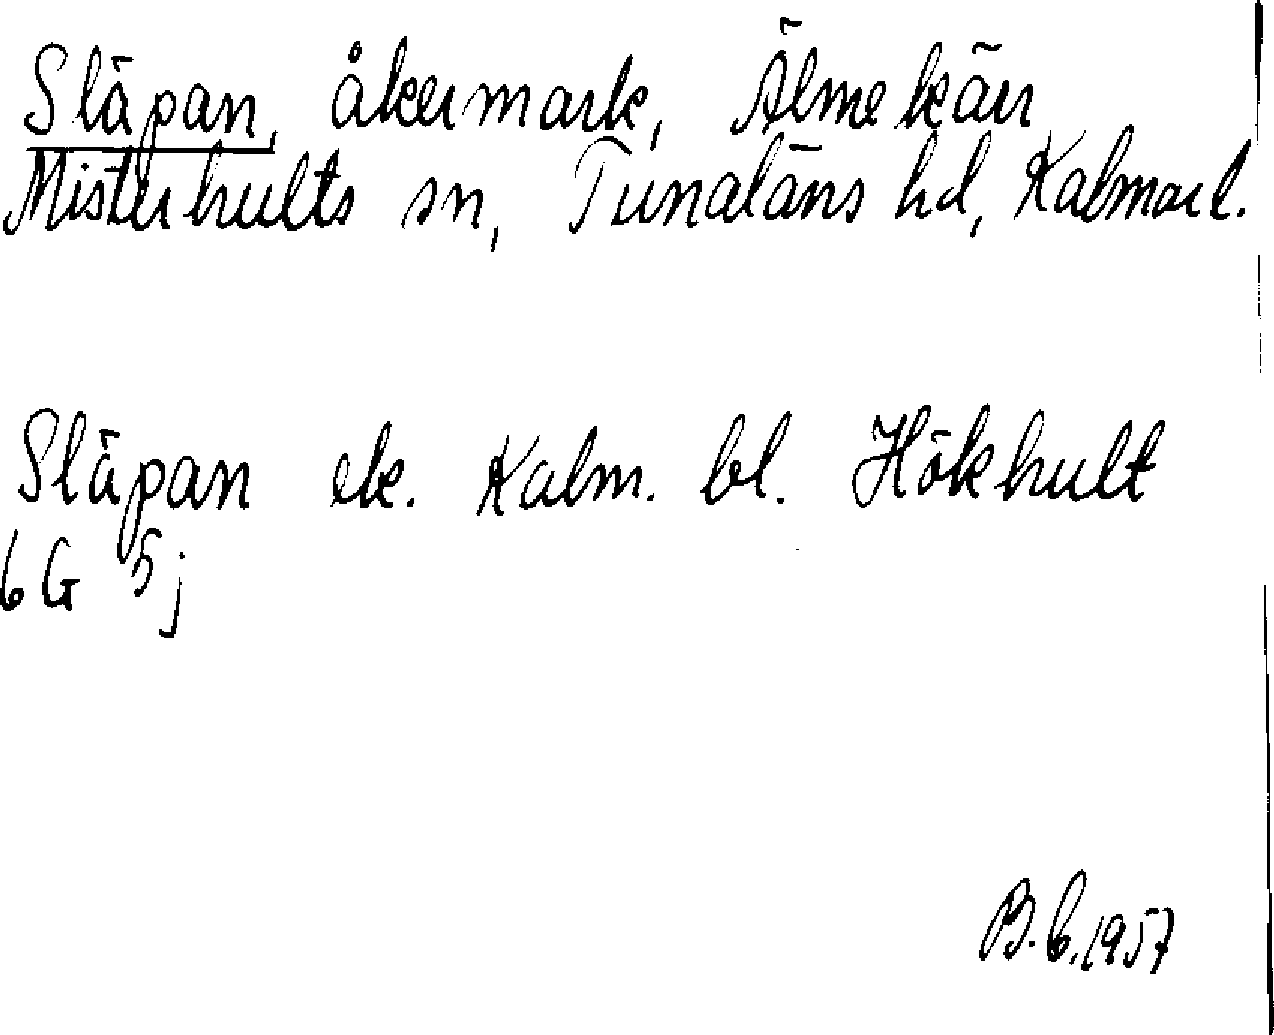 Släpan, åkermark, Älmekärr
Misterhults sn, Tunaläns hd, Kalmar l.
Släpan ek. Kalm. bl. Hökhult
6 G 5 j
B.C. 1957